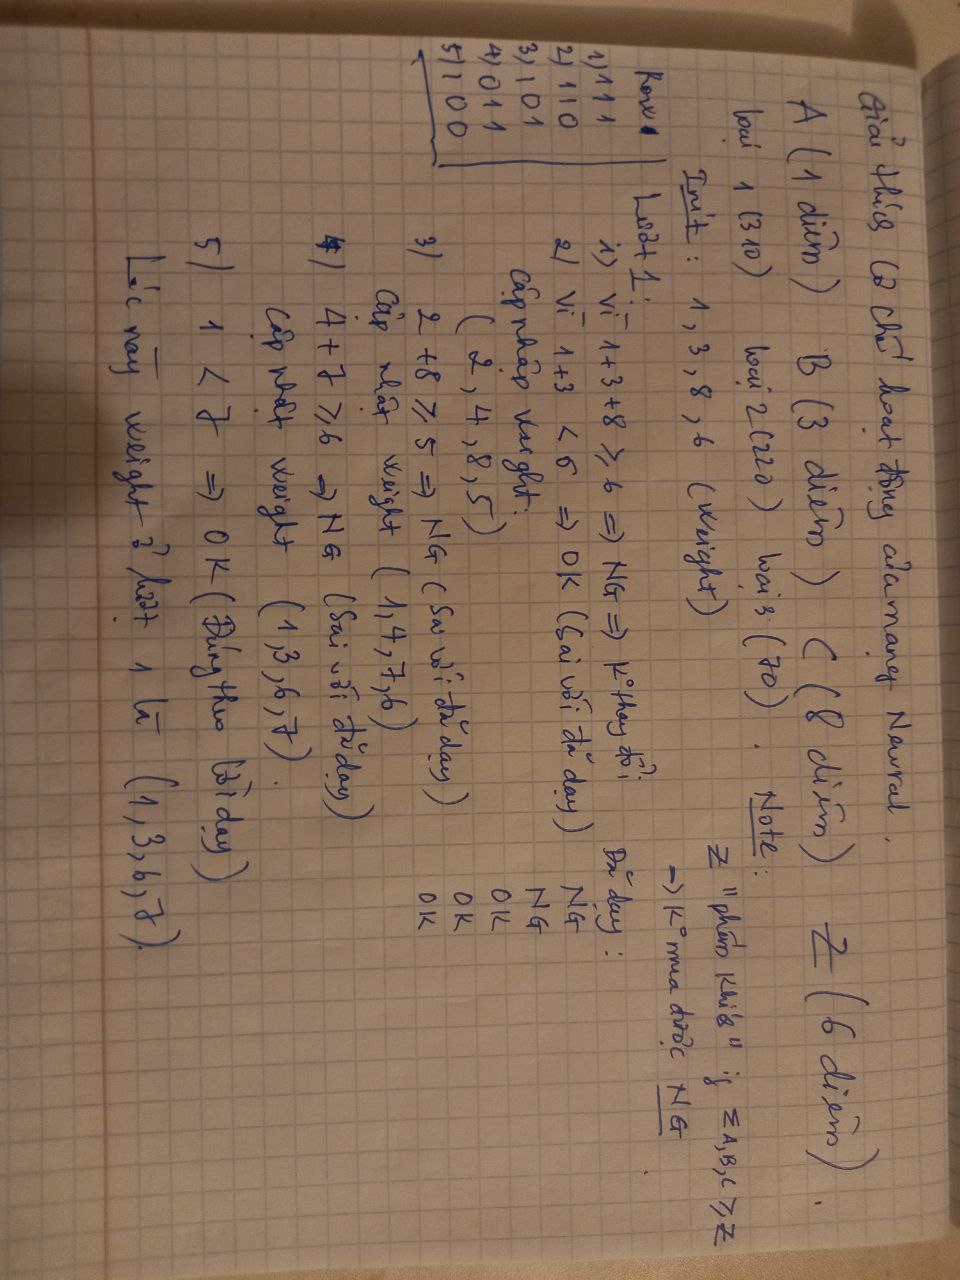 Giải thích cơ chế hoạt động của mạng Neural.
A (1 điểm) B (3 điểm) C (8 điểm) Z (6 điểm).
loại 1 (310) loại 2 (220) loại 3 (70). Note:
Z "phấn khích" if ΣA,B,C ≥ Z
→ K° mua được NG
Init: 1, 3, 8, 6 (Weight)
Row
1) 111
2) 110
3) 101
4) 011
5) 100
Lượt 1:
1) vì 1+3+8 ≥ 6 ⇒ NG ⇒ K° thay đổi
2) Vì 1+3 < 6 ⇒ OK (Sai với đã dạy)
Cập nhập weight:
(2, 4, 8, 5)
3) 2+8 ≥ 5 ⇒ NG (Sai với đã dạy)
Cập nhật weight (1,4,7,6)
4) 4+7 ≥ 6 → NG (Sai với đã dạy)
Cập nhật weight (1,3,6,7).
5) 1 < 7 ⇒ OK (Đúng theo lời dạy)
Lúc này weight ở lượt 1 là (1,3,6,7).
Đã dạy:
NG
NG
OK
OK
OK